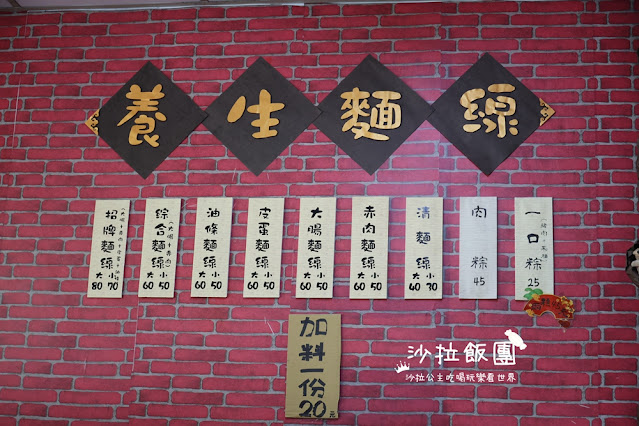 養生麵線
招牌麵線
(大腸+赤肉+皮蛋+油條)
大80 小70
綜合麵線
(大腸+赤肉)
大60 小50
油條麵線
大60 小50
皮蛋麵線
大60 小50
大腸麵線
大60 小50
赤肉麵線
大60 小50
清麵線
大 小
肉粽
45
一口粽
25
加料一份
20元
沙拉飯團
沙拉公主吃喝玩樂看世界